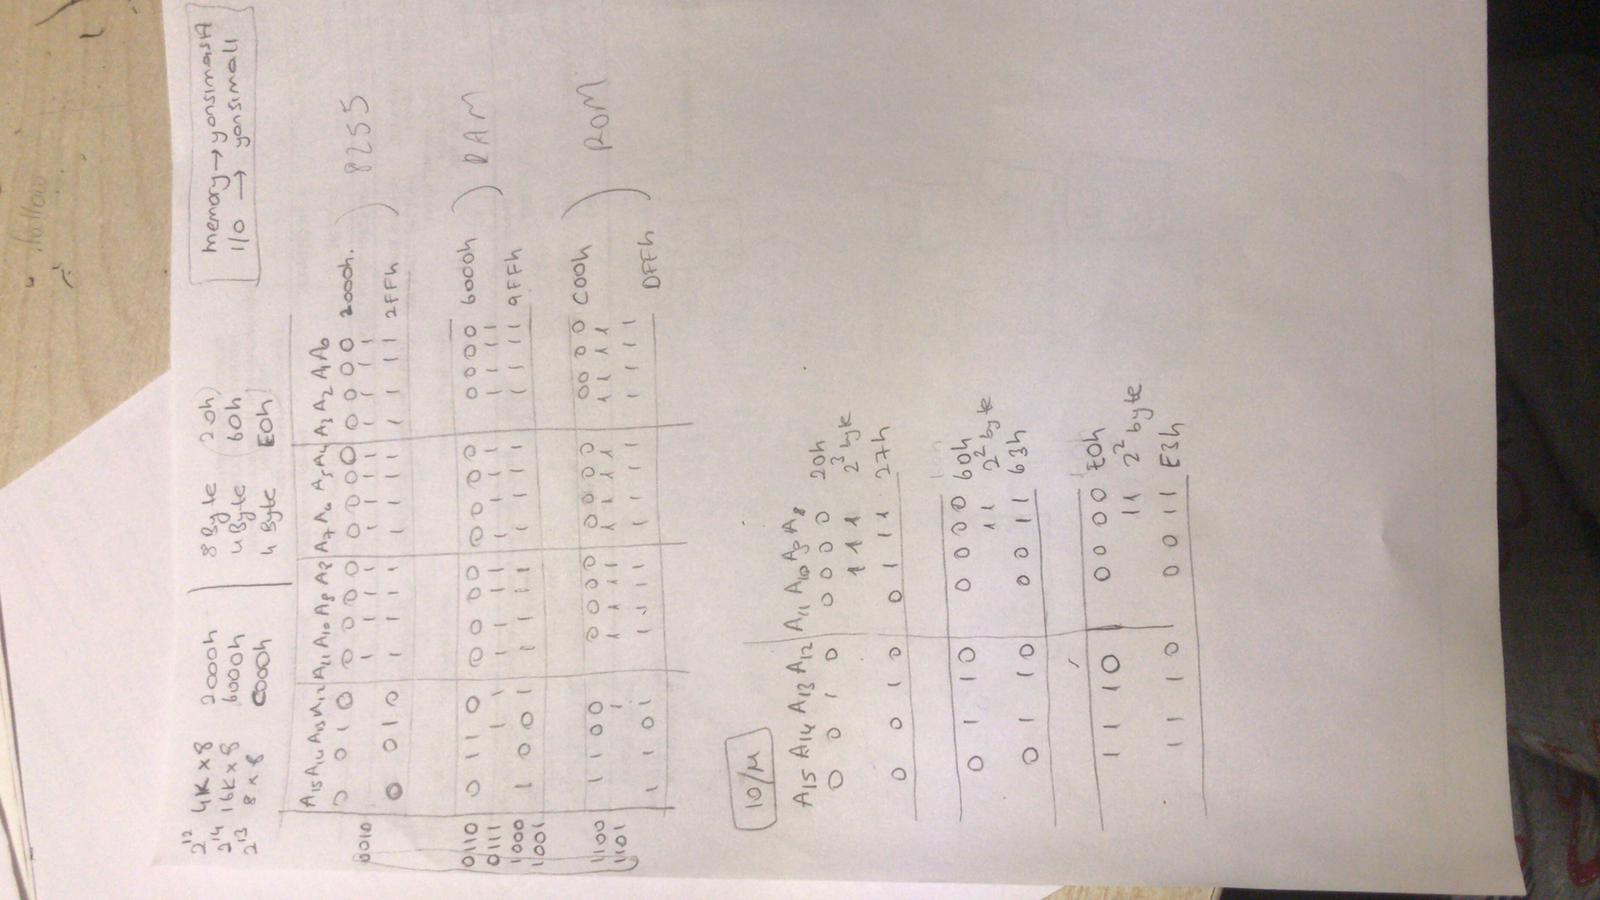 2^12 4K x 8 2000h 8 Byte 20h
2^14 16K x 8 6000h 4 Byte 60h
2^13 8 x 8 C000h 4 Byte E0h
memory → yansımasıA
I/O → yansımalı
A15 A14 A13 A12 A11 A10 A9 A8 A7 A6 A5 A4 A3 A2 A1 A0
0 0 1 0 0 0 0 0 0 0 0 0 0 0 0 0 2000h.
0010 1 1 1 1 1 1 1 1 1 1 1 1
0 0 1 0 1 1 1 1 1 1 1 1 1 1 1 1 2FFh
8255
0110 0 1 1 0 0 0 0 0 0 0 0 0 0 0 0 0 6000h
0111 1 1 1 1 1 1 1 1 1 1 1 1 1 1
1000 1 0 0 1 1 1 1 1 1 1 1 1 1 1 1 1 9FFh
1001
RAM
1100 1 1 0 0 0 0 0 0 0 0 0 0 0 0 0 0 C00h
1101 1 1 1 1 1 1 1 1 1 1 1 1 1
1 1 0 1 1 1 1 1 1 1 1 1 1 1 1 1 DFFh
ROM
IO/M
A15 A14 A13 A12 A11 A10 A9 A8
0 0 1 0 0 0 0 0 20h
1 1 1 2^3 byte
0 0 1 0 0 1 1 1 27h
0 1 1 0 0 0 0 0 60h
1 1 2^2 byte
0 1 1 0 0 0 1 1 63h
1 1 1 0 0 0 0 0 E0h
1 1 2^2 byte
1 1 1 0 0 0 1 1 E3h